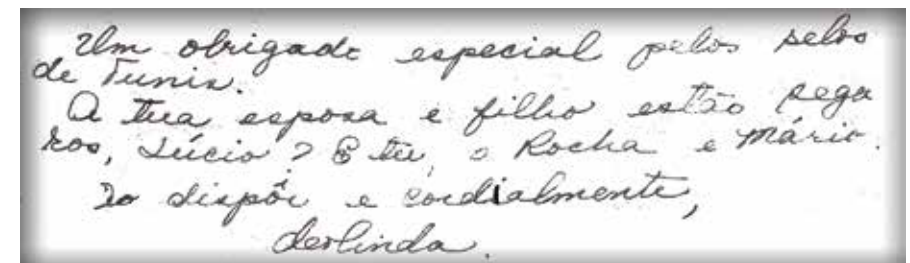 Um obrigado especial pelos selos
de Tunis.
A tua esposa e filho estão segu
ros, Lúcio? E tu, o Rocha e Mário.
Ao dispôr e cordialmente,
derlinda.